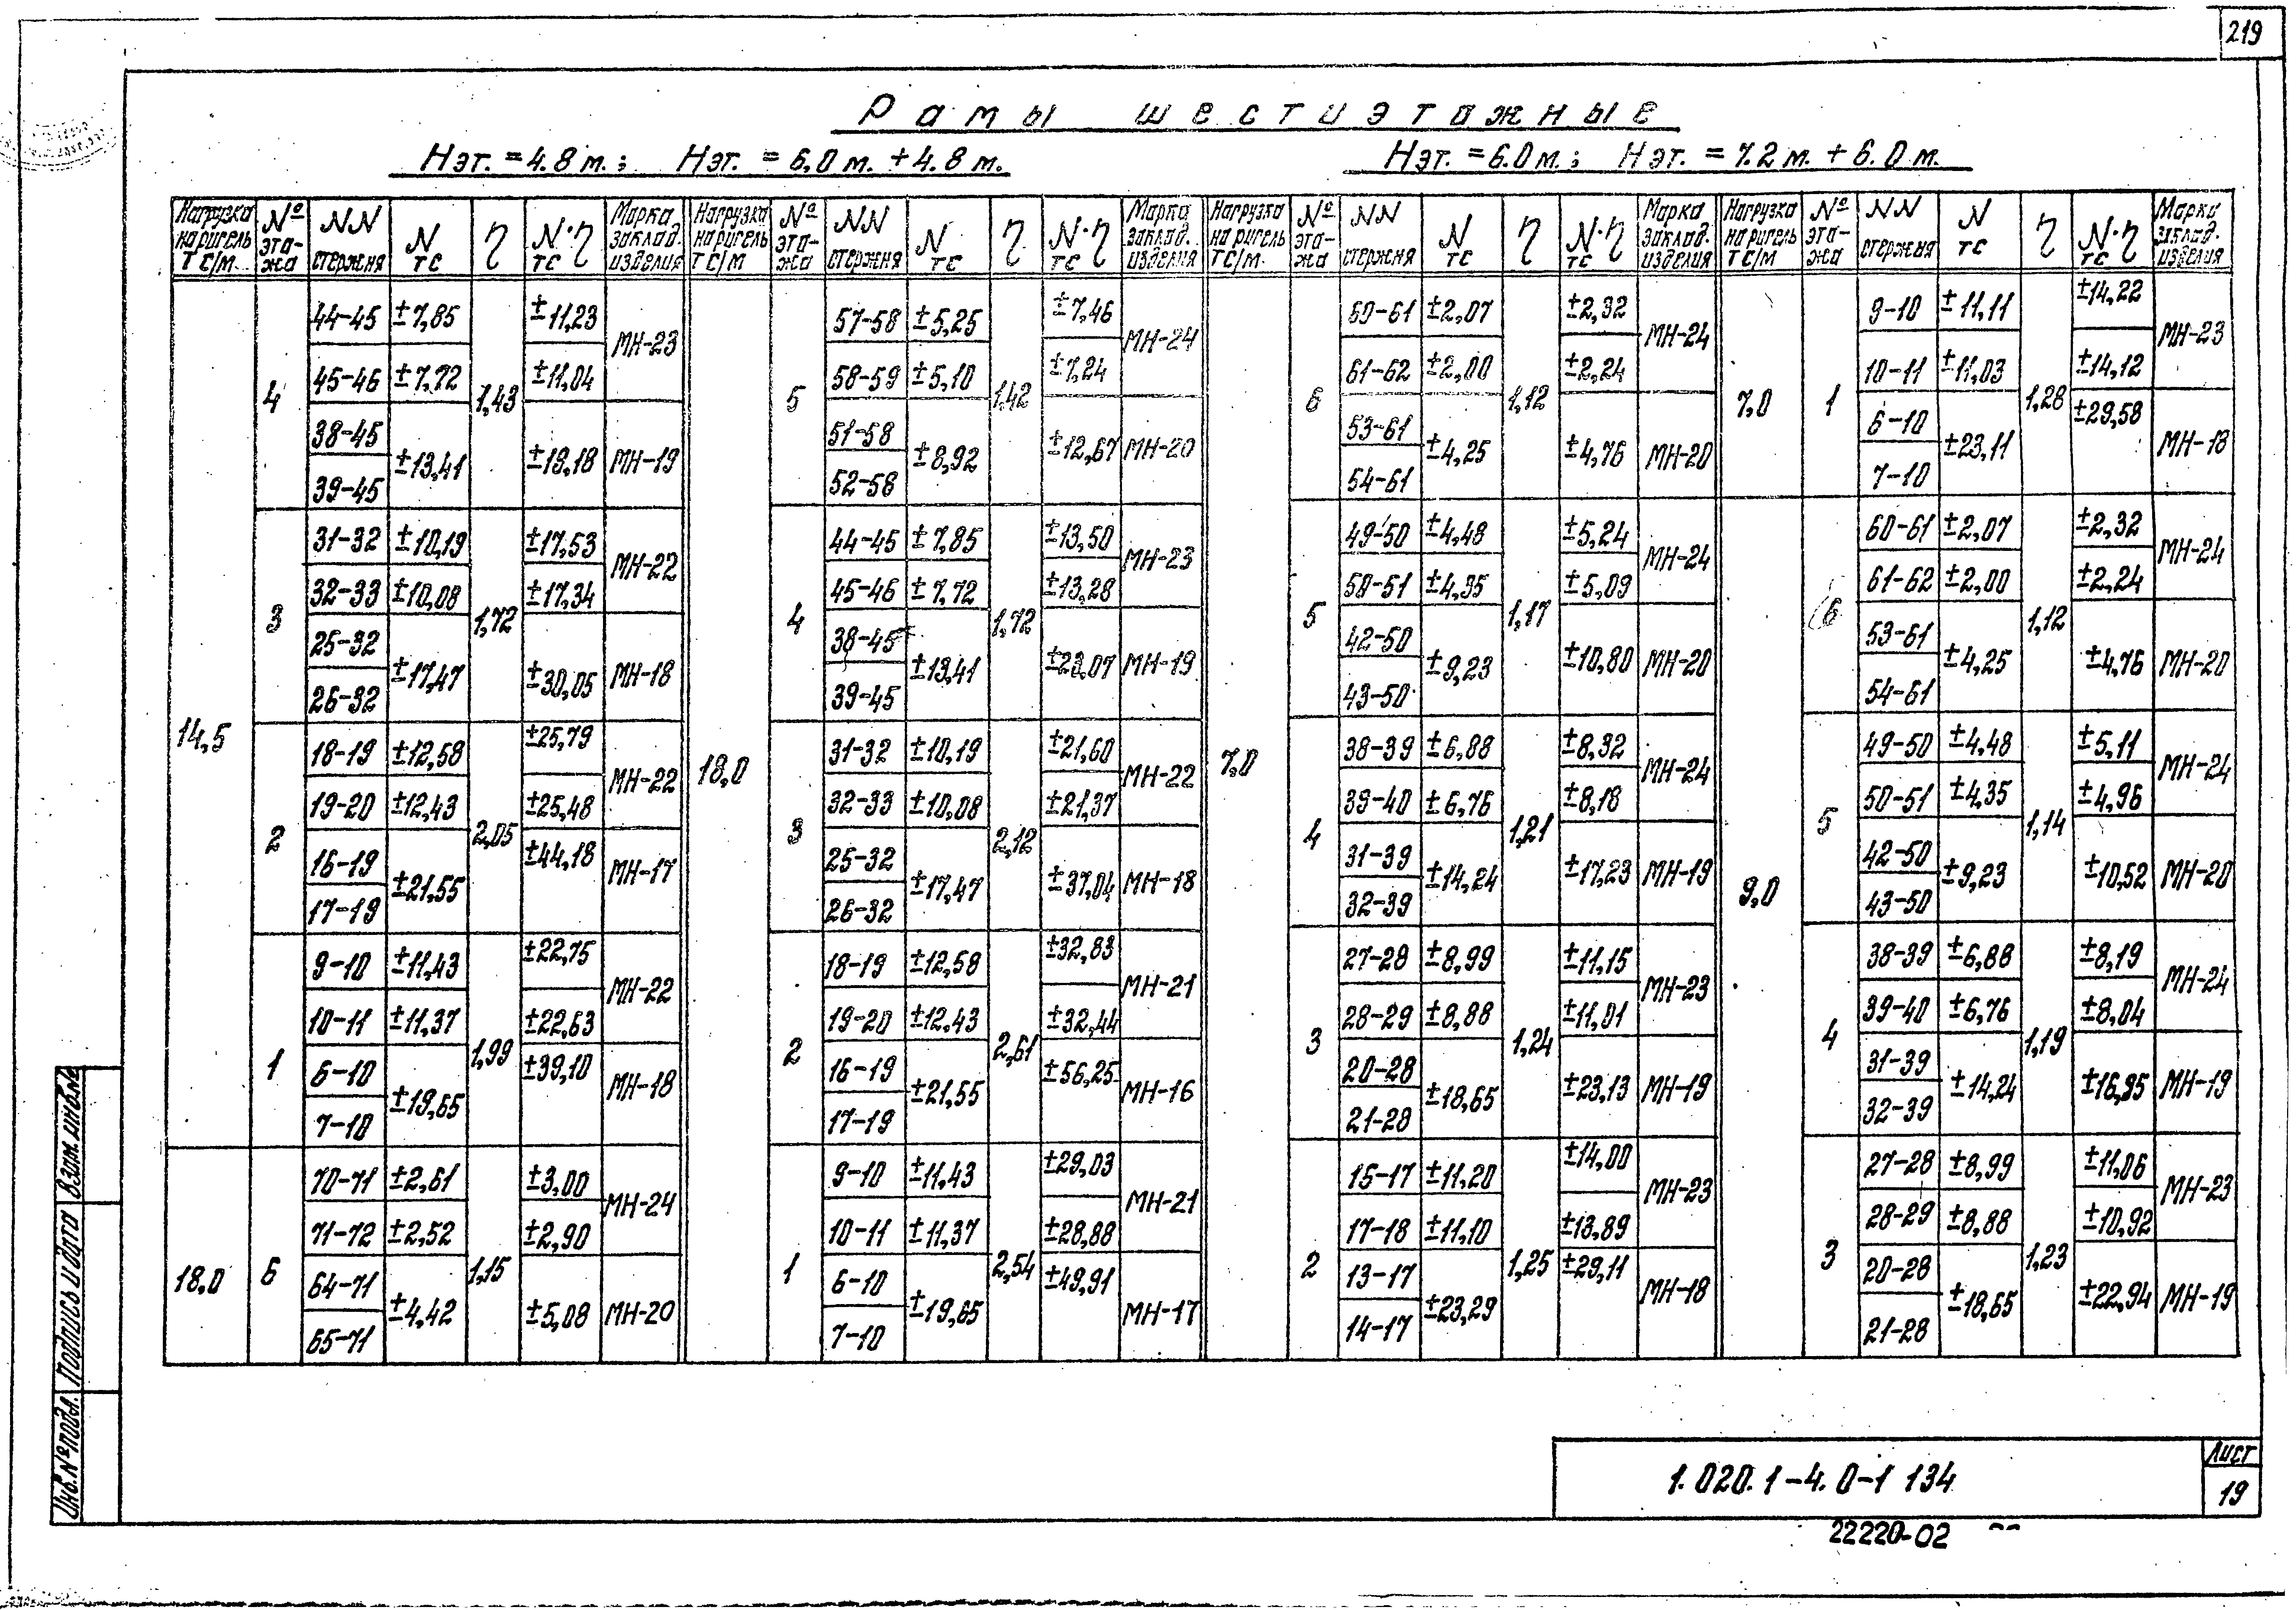 219
Рамы шестиэтажные
Нэт. = 4.8 м.; Нэт. = 6,0 м. + 4.8 м.
Нэт. = 6.0 м.; Нэт. = 7.2 м. + 6.0 м.
Нагрузка на ригель тс/м. № эта-жа NN стержня N тс η N·η тс Марка заклад. изделия
14,5
4 1,43
44-45 ±7,85 ±11,23 МН-23
45-46 ±7,72 ±11,04
38-45 ±13,41 ±19,18 МН-19
39-45
3 1,72
31-32 ±10,19 ±17,53 МН-22
32-33 ±10,08 ±17,34
25-32 ±17,47 ±30,05 МН-18
26-32
2 2,05
18-19 ±12,58 ±25,79 МН-22
19-20 ±12,43 ±25,48
16-19 ±21,55 ±44,18 МН-17
17-19
1 1,99
9-10 ±11,43 ±22,75 МН-22
10-11 ±11,37 ±22,63
6-10 ±19,65 ±39,10 МН-18
7-10
18,0
6 1,15
70-71 ±2,61 ±3,00 МН-24
71-72 ±2,52 ±2,90
64-71 ±4,42 ±5,08 МН-20
65-71
Нагрузка на ригель тс/м № эта-жа NN стержня N тс η N·η тс Марка заклад. изделия
18,0
5 1,42
57-58 ±5,25 ±7,46 МН-24
58-59 ±5,10 ±7,24
51-58 ±8,92 ±12,67 МН-20
52-58
4 1,72
44-45 ±7,85 ±13,50 МН-23
45-46 ±7,72 ±13,28
38-45 ±13,41 ±23,07 МН-19
39-45
3 2,12
31-32 ±10,19 ±21,60 МН-22
32-33 ±10,08 ±21,37
25-32 ±17,47 ±37,04 МН-18
26-32
2 2,61
18-19 ±12,58 ±32,83 МН-21
19-20 ±12,43 ±32,44
16-19 ±21,55 ±56,25 МН-16
17-19
1 2,54
9-10 ±11,43 ±29,03 МН-21
10-11 ±11,37 ±28,88
6-10 ±19,65 ±49,91 МН-17
7-10
Нагрузка на ригель тс/м. № эта-жа NN стержня N тс η N·η тс Марка заклад. изделия
7,0
6 1,12
60-61 ±2,07 ±2,32 МН-24
61-62 ±2,00 ±2,24
53-61 ±4,25 ±4,76 МН-20
54-61
5 1,17
49-50 ±4,48 ±5,24 МН-24
50-51 ±4,35 ±5,09
42-50 ±9,23 ±10,80 МН-20
43-50
4 1,21
38-39 ±6,88 ±8,32 МН-24
39-40 ±6,76 ±8,18
31-39 ±14,24 ±17,23 МН-19
32-39
3 1,24
27-28 ±8,99 ±11,15 МН-23
28-29 ±8,88 ±11,01
20-28 ±18,65 ±23,13 МН-19
21-28
2 1,25
15-17 ±11,20 ±14,00 МН-23
17-18 ±11,10 ±13,89
13-17 ±23,29 ±29,11 МН-18
14-17
Нагрузка на ригель тс/м № эта-жа NN стержня N тс η N·η тс Марка заклад. изделия
7,0
1 1,28
9-10 ±11,11 ±14,22 МН-23
10-11 ±11,03 ±14,12
6-10 ±23,11 ±29,58 МН-18
7-10
9,0
6 1,12
60-61 ±2,07 ±2,32 МН-24
61-62 ±2,00 ±2,24
53-61 ±4,25 ±4,76 МН-20
54-61
5 1,14
49-50 ±4,48 ±5,11 МН-24
50-51 ±4,35 ±4,96
42-50 ±9,23 ±10,52 МН-20
43-50
4 1,19
38-39 ±6,88 ±8,19 МН-24
39-40 ±6,76 ±8,04
31-39 ±14,24 ±16,95 МН-19
32-39
3 1,23
27-28 ±8,99 ±11,06 МН-23
28-29 ±8,88 ±10,92
20-28 ±18,65 ±22,94 МН-19
21-28
Инв.№подл. Подпись и дата Взам.инв.№
1.020.1-4.0-1 134
Лист
19
22220-02